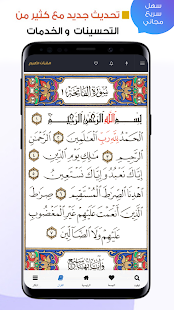 تحديث جديد مع كثير من
التحسينات و الخدمات
سهل
سريع
مجاني
سُورَةُ الْفَاتِحَةِ
بِسْمِ اللَّهِ الرَّحْمَٰنِ الرَّحِيمِ ١
الْحَمْدُ لِلَّهِ رَبِّ الْعَالَمِينَ ٢
الرَّحْمَٰنِ الرَّحِيمِ ٣ مَالِكِ يَوْمِ الدِّينِ ٤
إِيَّاكَ نَعْبُدُ وَإِيَّاكَ نَسْتَعِينُ ٥
اهْدِنَا الصِّرَاطَ الْمُسْتَقِيمَ ٦ صِرَاطَ الَّذِينَ
أَنْعَمْتَ عَلَيْهِمْ غَيْرِ الْمَغْضُوبِ
عَلَيْهِمْ وَلَا الضَّالِّينَ ٧